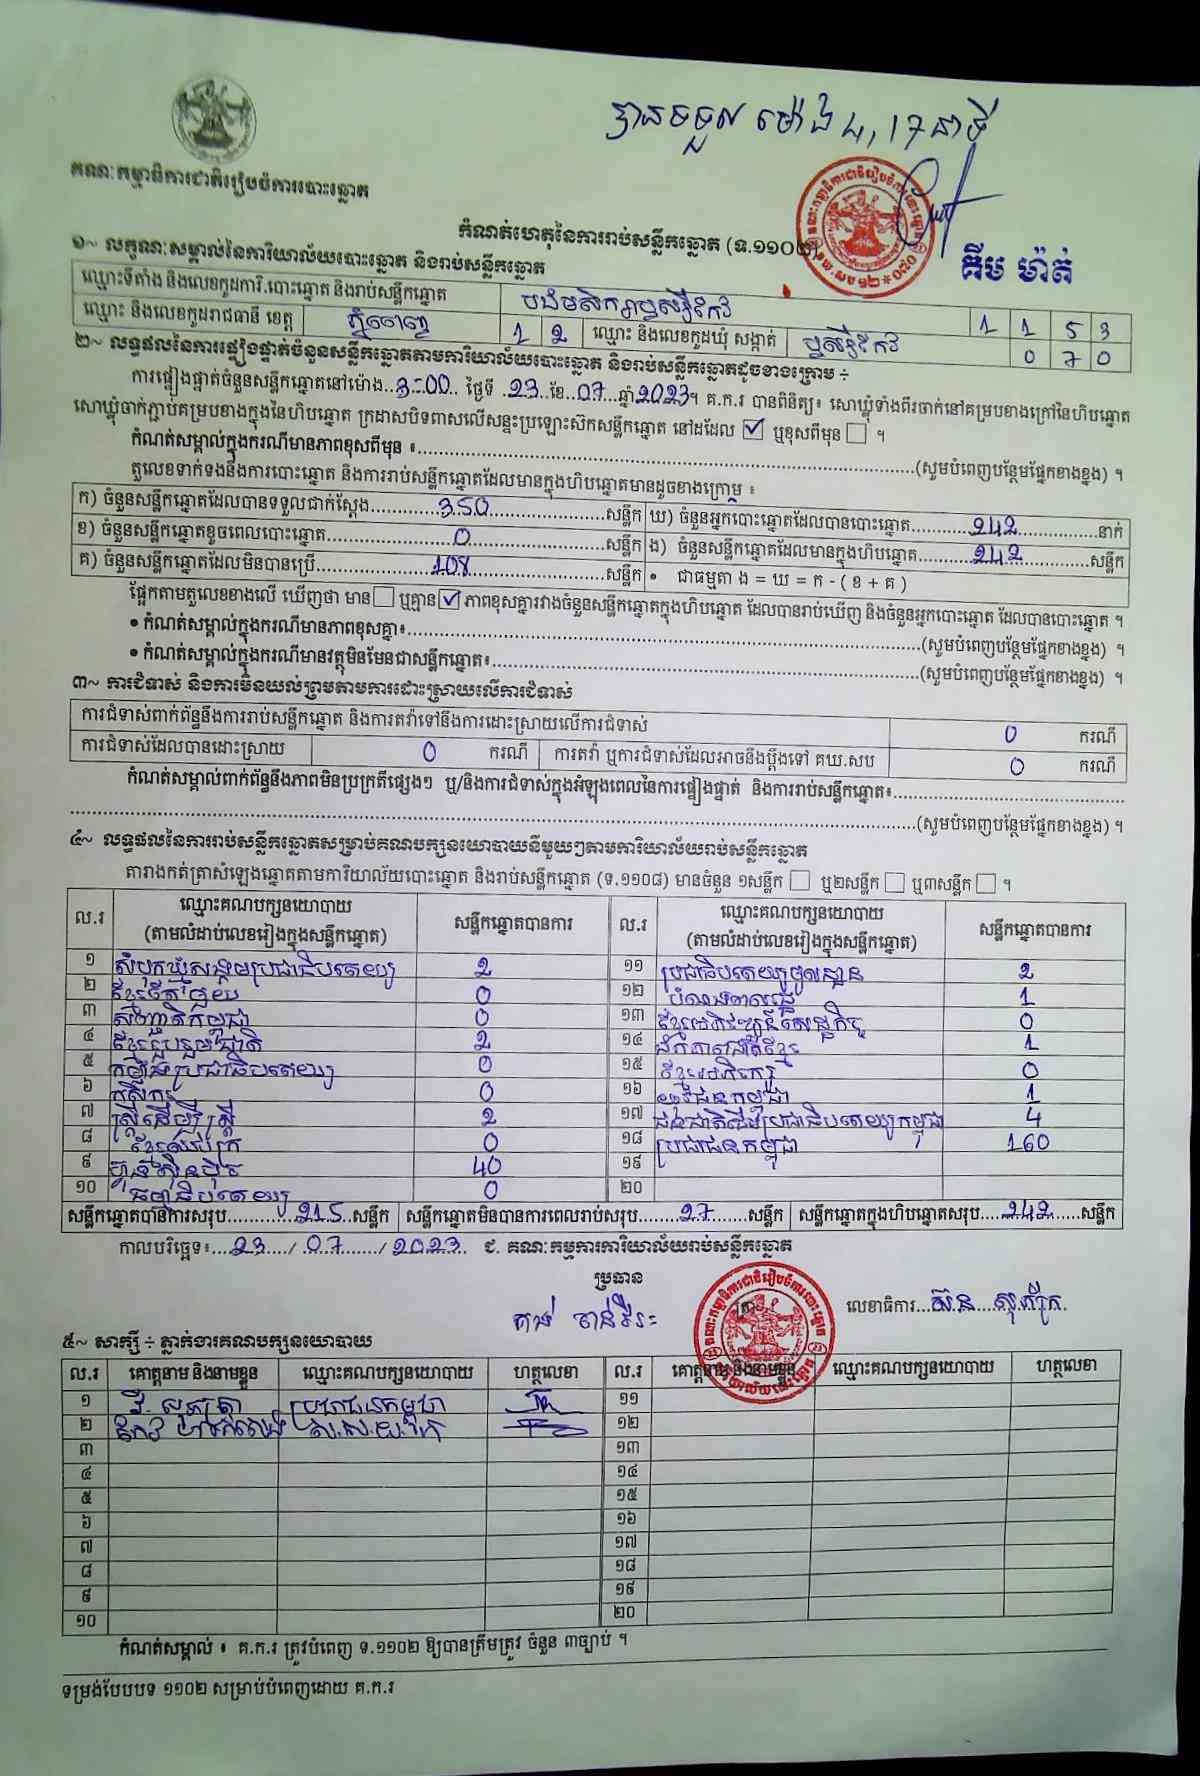 បានទទួល ម៉ោង ៤,17នាទី
គណៈកម្មាធិការជាតិរៀបចំការបោះឆ្នោត
កំណត់ហេតុនៃការរាប់សន្លឹកឆ្នោត (ទ.១១០២)
គឹម ម៉ាត់
១~ លក្ខណៈសម្គាល់នៃការិយាល័យបោះឆ្នោត និងរាប់សន្លឹកឆ្នោត
ឈ្មោះទីតាំង និងលេខកូដការិ.បោះឆ្នោត និងរាប់សន្លឹកឆ្នោត 1 1 5 3
ឈ្មោះ និងលេខកូដរាជធានី ខេត្ត ភ្នំពេញ 1 2 ឈ្មោះ និងលេខកូដឃុំ សង្កាត់ ឫស្សីកែវ 0 7 0
២~ លទ្ធផលនៃការផ្ទៀងផ្ទាត់ចំនួនសន្លឹកឆ្នោតតាមការិយាល័យបោះឆ្នោត និងរាប់សន្លឹកឆ្នោតដូចខាងក្រោម ÷
ការផ្ទៀងផ្ទាត់ចំនួនសន្លឹកឆ្នោតនៅម៉ោង..3:00.. ថ្ងៃទី .23..ខែ..07...ឆ្នាំ2023។ គ.ក.រ បានពិនិត្យ៖ សោឃ្លុំទាំងពីរចាក់នៅគម្របខាងក្រៅនៃហិបឆ្នោត
សោឃ្លុំចាក់ភ្ជាប់គម្របខាងក្នុងនៃហិបឆ្នោត ក្រដាសបិទពាសលើសន្ទះប្រឡោះស៊កសន្លឹកឆ្នោត នៅដដែល ☑ ឬខុសពីមុន ☐ ។
កំណត់សម្គាល់ក្នុងករណីមានភាពខុសពីមុន ៖......(សូមបំពេញបន្ថែមផ្នែកខាងខ្នង) ។
តួលេខទាក់ទងនឹងការបោះឆ្នោត និងការរាប់សន្លឹកឆ្នោតដែលមានក្នុងហិបឆ្នោតមានដូចខាងក្រោម ៖
ក) ចំនួនសន្លឹកឆ្នោតដែលបានទទួលជាក់ស្តែង......350......សន្លឹក ឃ) ចំនួនអ្នកបោះឆ្នោតដែលបានបោះឆ្នោត......242......នាក់
ខ) ចំនួនសន្លឹកឆ្នោតខូចពេលបោះឆ្នោត......0......សន្លឹក ង) ចំនួនសន្លឹកឆ្នោតដែលមានក្នុងហិបឆ្នោត......242......សន្លឹក
គ) ចំនួនសន្លឹកឆ្នោតដែលមិនបានប្រើ......108......សន្លឹក • ជាធម្មតា ង = ឃ = ក - ( ខ + គ )
ផ្អែកតាមតួលេខខាងលើ ឃើញថា មាន☐ ឬគ្មាន☑ ភាពខុសគ្នារវាងចំនួនសន្លឹកឆ្នោតក្នុងហិបឆ្នោត ដែលបានរាប់ឃើញ និងចំនួនអ្នកបោះឆ្នោត ដែលបានបោះឆ្នោត ។
• កំណត់សម្គាល់ក្នុងករណីមានភាពខុសគ្នា៖......(សូមបំពេញបន្ថែមផ្នែកខាងខ្នង) ។
• កំណត់សម្គាល់ក្នុងករណីមានវត្ថុមិនមែនជាសន្លឹកឆ្នោត៖......(សូមបំពេញបន្ថែមផ្នែកខាងខ្នង) ។
៣~ ការជំទាស់ និងការមិនយល់ព្រមតាមការដោះស្រាយលើការជំទាស់
ការជំទាស់ពាក់ព័ន្ធនឹងការរាប់សន្លឹកឆ្នោត និងការតវ៉ាទៅនឹងការដោះស្រាយលើការជំទាស់ 0 ករណី
ការជំទាស់ដែលបានដោះស្រាយ 0 ករណី ការតវ៉ា ឬការជំទាស់ដែលអាចនឹងប្តឹងទៅ គឃ.សប 0 ករណី
កំណត់សម្គាល់ពាក់ព័ន្ធនឹងភាពមិនប្រក្រតីផ្សេងៗ ឬ/និងការជំទាស់ក្នុងអំឡុងពេលនៃការផ្ទៀងផ្ទាត់ និងការរាប់សន្លឹកឆ្នោត៖......
......(សូមបំពេញបន្ថែមផ្នែកខាងខ្នង) ។
៤~ លទ្ធផលនៃការរាប់សន្លឹកឆ្នោតសម្រាប់គណបក្សនយោបាយនីមួយៗតាមការិយាល័យរាប់សន្លឹកឆ្នោត
តារាងកត់ត្រាសំឡេងឆ្នោតតាមការិយាល័យបោះឆ្នោត និងរាប់សន្លឹកឆ្នោត (ទ.១១០៨) មានចំនួន ១សន្លឹក ☐ ឬ២សន្លឹក ☐ ឬ៣សន្លឹក ☐ ។
ល.រ ឈ្មោះគណបក្សនយោបាយ (តាមលំដាប់លេខរៀងក្នុងសន្លឹកឆ្នោត) សន្លឹកឆ្នោតបានការ ល.រ ឈ្មោះគណបក្សនយោបាយ (តាមលំដាប់លេខរៀងក្នុងសន្លឹកឆ្នោត) សន្លឹកឆ្នោតបានការ
១ សំបុកឃ្មុំសង្គមប្រជាធិបតេយ្យ 2 ១១ ប្រជាធិបតេយ្យមូលដ្ឋាន 2
២ ខ្មែរតែមួយ 0 ១២ បំណងពលរដ្ឋ 1
៣ សញ្ជាតិកម្ពុជា 0 ១៣ ខ្មែរអភិវឌ្ឍន៍សេដ្ឋកិច្ច 0
៤ ខ្មែររួបរួមជាតិ 2 ១៤ ឯកភាពជាតិខ្មែរ 1
៥ កម្លាំងប្រជាធិបតេយ្យ 0 ១៥ ខ្មែរអភិរក្ស 0
៦ កសិករ 0 ១៦ យុវជនកម្ពុជា 1
៧ ស្ត្រីដើម្បីស្ត្រី 2 ១៧ ជនជាតិដើមប្រជាធិបតេយ្យកម្ពុជា 4
៨ ខ្មែរឈប់ក្រ 0 ១៨ ប្រជាជនកម្ពុជា 160
៩ ហ៊្វុនស៊ិនប៉ិច 40 ១៩
១០ ធម្មាធិបតេយ្យ 0 ២០
សន្លឹកឆ្នោតបានការសរុប......215...សន្លឹក សន្លឹកឆ្នោតមិនបានការពេលរាប់សរុប......27......សន្លឹក សន្លឹកឆ្នោតក្នុងហិបឆ្នោតសរុប......242......សន្លឹក
កាលបរិច្ឆេទ៖...23..../.07....../2023.. ជ. គណៈកម្មការការិយាល័យរាប់សន្លឹកឆ្នោត
ប្រធាន
លេខាធិការ
៥~ សាក្សី ÷ ភ្នាក់ងារគណបក្សនយោបាយ
ល.រ គោត្តនាម និងនាមខ្លួន ឈ្មោះគណបក្សនយោបាយ ហត្ថលេខា ល.រ គោត្តនាម និងនាមខ្លួន ឈ្មោះគណបក្សនយោបាយ ហត្ថលេខា
១ ប្រជាជនកម្ពុជា ១១
២ ស.ស.យ.ក ១២
៣ ១៣
៤ ១៤
៥ ១៥
៦ ១៦
៧ ១៧
៨ ១៨
៩ ១៩
១០ ២០
កំណត់សម្គាល់ ៖ គ.ក.រ ត្រូវបំពេញ ទ.១១០២ ឱ្យបានត្រឹមត្រូវ ចំនួន ៣ច្បាប់ ។
ទម្រង់បែបបទ ១១០២ សម្រាប់បំពេញដោយ គ.ក.រ